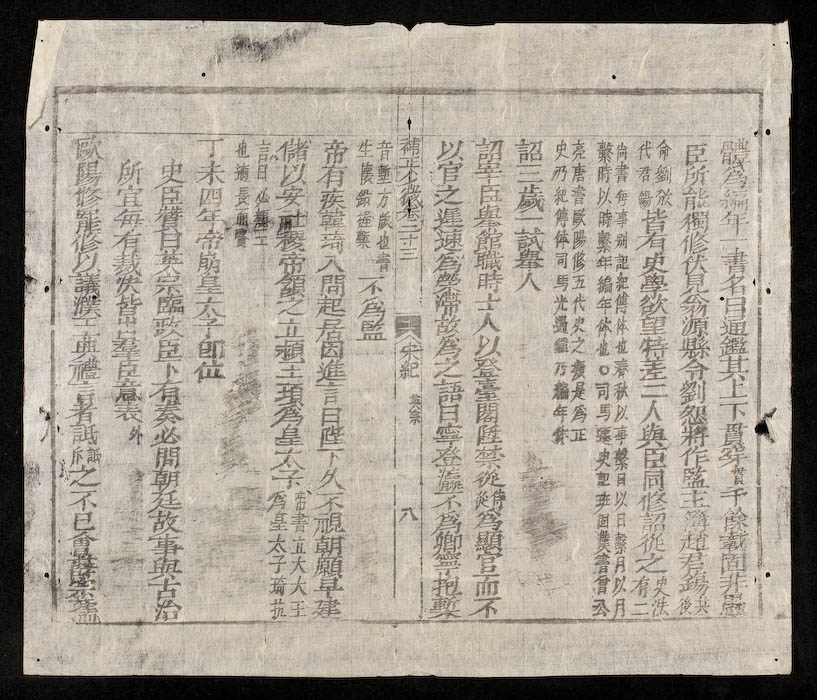 體爲編年一書名曰通鑑其上下貫穿千餘載固非愚
臣所能獨修伏見翁源縣令劉恕將作監主簿趙君錫
皆有史學欲望特差二人與臣同修詔從之
尚書每事別記紀傳体也春秋以事繫日以日繫月以月
繫時以時繫年編年体也○司馬遷史記班固漢書
亮唐書歐陽修五代史之類是爲正
史乃紀傳体司馬光通鑑乃編年体
詔三歲一試舉人
詔宰臣與館職時士人以登臺閣陞禁從爲顯官而不
以官之遲速爲榮滯故爲之語曰寧登瀛不爲卿寧抱槧
補正少微卷二十三 宋紀 英宗 八
音方版也書
生懷鉛握槧
不爲監
帝有疾韓琦入問起居因進言曰陛下久不視朝願早建
儲以安社稷帝頷之立潁王頊爲皇太子
帝書立大大王
爲皇太子琦抗
言曰必潁王
也
丁未四年帝崩皇太子即位
史臣贊曰英宗臨政臣下有奏必問朝廷故事與古治
所宜每有裁決皆出羣臣意表
歐陽修罷修以議濮王典禮言者詆之不已